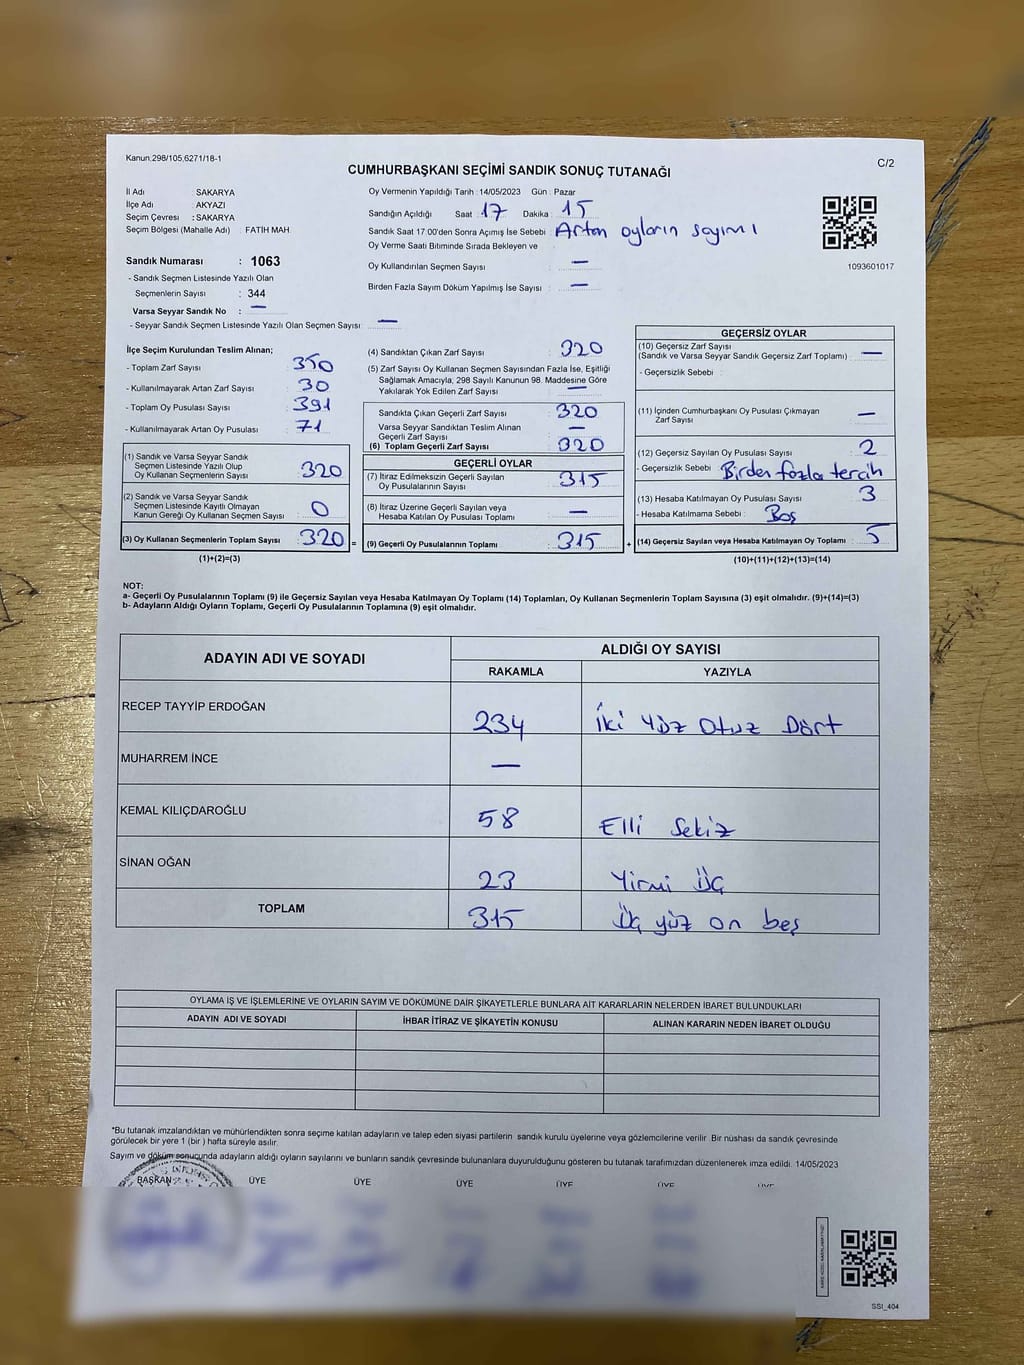 Kanun.298/105,6271/18-1
C/2
CUMHURBAŞKANI SEÇİMİ SANDIK SONUÇ TUTANAĞI
İl Adı : SAKARYA
İlçe Adı : AKYAZI
Seçim Çevresi : SAKARYA
Seçim Bölgesi (Mahalle Adı) : FATİH MAH.
Sandık Numarası : 1063
- Sandık Seçmen Listesinde Yazılı Olan
Seçmenlerin Sayısı : 344
Varsa Seyyar Sandık No : —
- Seyyar Sandık Seçmen Listesinde Yazılı Olan Seçmen Sayısı —
Oy Vermenin Yapıldığı Tarih : 14/05/2023 Gün : Pazar
Sandığın Açıldığı Saat 17 Dakika : 15
Sandık Saat 17.00'den Sonra Açımış İse Sebebi : Artan oyların sayımı
Oy Verme Saati Bitiminde Sırada Bekleyen ve
Oy Kullandırılan Seçmen Sayısı : —
Birden Fazla Sayım Döküm Yapılmış İse Sayısı : —
1093601017
İlçe Seçim Kurulundan Teslim Alınan;
- Toplam Zarf Sayısı : 350
- Kullanılmayarak Artan Zarf Sayısı : 30
- Toplam Oy Pusulası Sayısı : 391
- Kullanılmayarak Artan Oy Pusulası : 71
(1) Sandık ve Varsa Seyyar Sandık
Seçmen Listesinde Yazılı Olup
Oy Kullanan Seçmenlerin Sayısı : 320
(2) Sandık ve Varsa Seyyar Sandık
Seçmen Listesinde Kayıtlı Olmayan
Kanun Gereği Oy Kullanan Seçmen Sayısı : 0
(3) Oy Kullanan Seçmenlerin Toplam Sayısı : 320 =
(1)+(2)=(3)
(4) Sandıktan Çıkan Zarf Sayısı : 320
(5) Zarf Sayısı Oy Kullanan Seçmen Sayısından Fazla İse, Eşitliği
Sağlamak Amacıyla, 298 Sayılı Kanunun 98. Maddesine Göre
Yakılarak Yok Edilen Zarf Sayısı : —
Sandıkta Çıkan Geçerli Zarf Sayısı : 320
Varsa Seyyar Sandıktan Teslim Alınan
Geçerli Zarf Sayısı : —
(6) Toplam Geçerli Zarf Sayısı : 320
GEÇERLİ OYLAR
(7) İtiraz Edilmeksizin Geçerli Sayılan
Oy Pusulalarının Sayısı : 315
(8) İtiraz Üzerine Geçerli Sayılan veya
Hesaba Katılan Oy Pusulası Toplamı : —
(9) Geçerli Oy Pusulalarının Toplamı : 315 +
GEÇERSİZ OYLAR
(10) Geçersiz Zarf Sayısı
(Sandık ve Varsa Seyyar Sandık Geçersiz Zarf Toplamı) : —
- Geçersizlik Sebebi :
(11) İçinden Cumhurbaşkanı Oy Pusulası Çıkmayan
Zarf Sayısı : —
(12) Geçersiz Sayılan Oy Pusulası Sayısı : 2
- Geçersizlik Sebebi : Birden fazla tercih
(13) Hesaba Katılmayan Oy Pusulası Sayısı : 3
- Hesaba Katılmama Sebebi : Boş
(14) Geçersiz Sayılan veya Hesaba Katılmayan Oy Toplamı : 5
(10)+(11)+(12)+(13)=(14)
NOT:
a- Geçerli Oy Pusulalarının Toplamı (9) ile Geçersiz Sayılan veya Hesaba Katılmayan Oy Toplamı (14) Toplamları, Oy Kullanan Seçmenlerin Toplam Sayısına (3) eşit olmalıdır. (9)+(14)=(3)
b- Adayların Aldığı Oyların Toplamı, Geçerli Oy Pusulalarının Toplamına (9) eşit olmalıdır.
ADAYIN ADI VE SOYADI
ALDIĞI OY SAYISI
RAKAMLA YAZIYLA
RECEP TAYYİP ERDOĞAN 234 İki Yüz Otuz Dört
MUHARREM İNCE —
KEMAL KILIÇDAROĞLU 58 Elli Sekiz
SİNAN OĞAN 23 Yirmi Üç
TOPLAM 315 Üç yüz on beş
OYLAMA İŞ VE İŞLEMLERİNE VE OYLARIN SAYIM VE DÖKÜMÜNE DAİR ŞİKAYETLERLE BUNLARA AİT KARARLARIN NELERDEN İBARET BULUNDUKLARI
ADAYIN ADI VE SOYADI İHBAR İTİRAZ VE ŞİKAYETİN KONUSU ALINAN KARARIN NEDEN İBARET OLDUĞU
*Bu tutanak imzalandıktan ve mühürlendikten sonra seçime katılan adayların ve talep eden siyasi partilerin sandık kurulu üyelerine veya gözlemcilerine verilir. Bir nüshası da sandık çevresinde
görülecek bir yere 1 (bir ) hafta süreyle asılır.
Sayım ve döküm sonucunda adayların aldığı oyların sayılarını ve bunların sandık çevresinde bulunanlara duyurulduğunu gösteren bu tutanak tarafımızdan düzenlenerek imza edildi. 14/05/2023
BAŞKAN ÜYE ÜYE ÜYE ÜYE ÜYE ÜYE
SSI_404